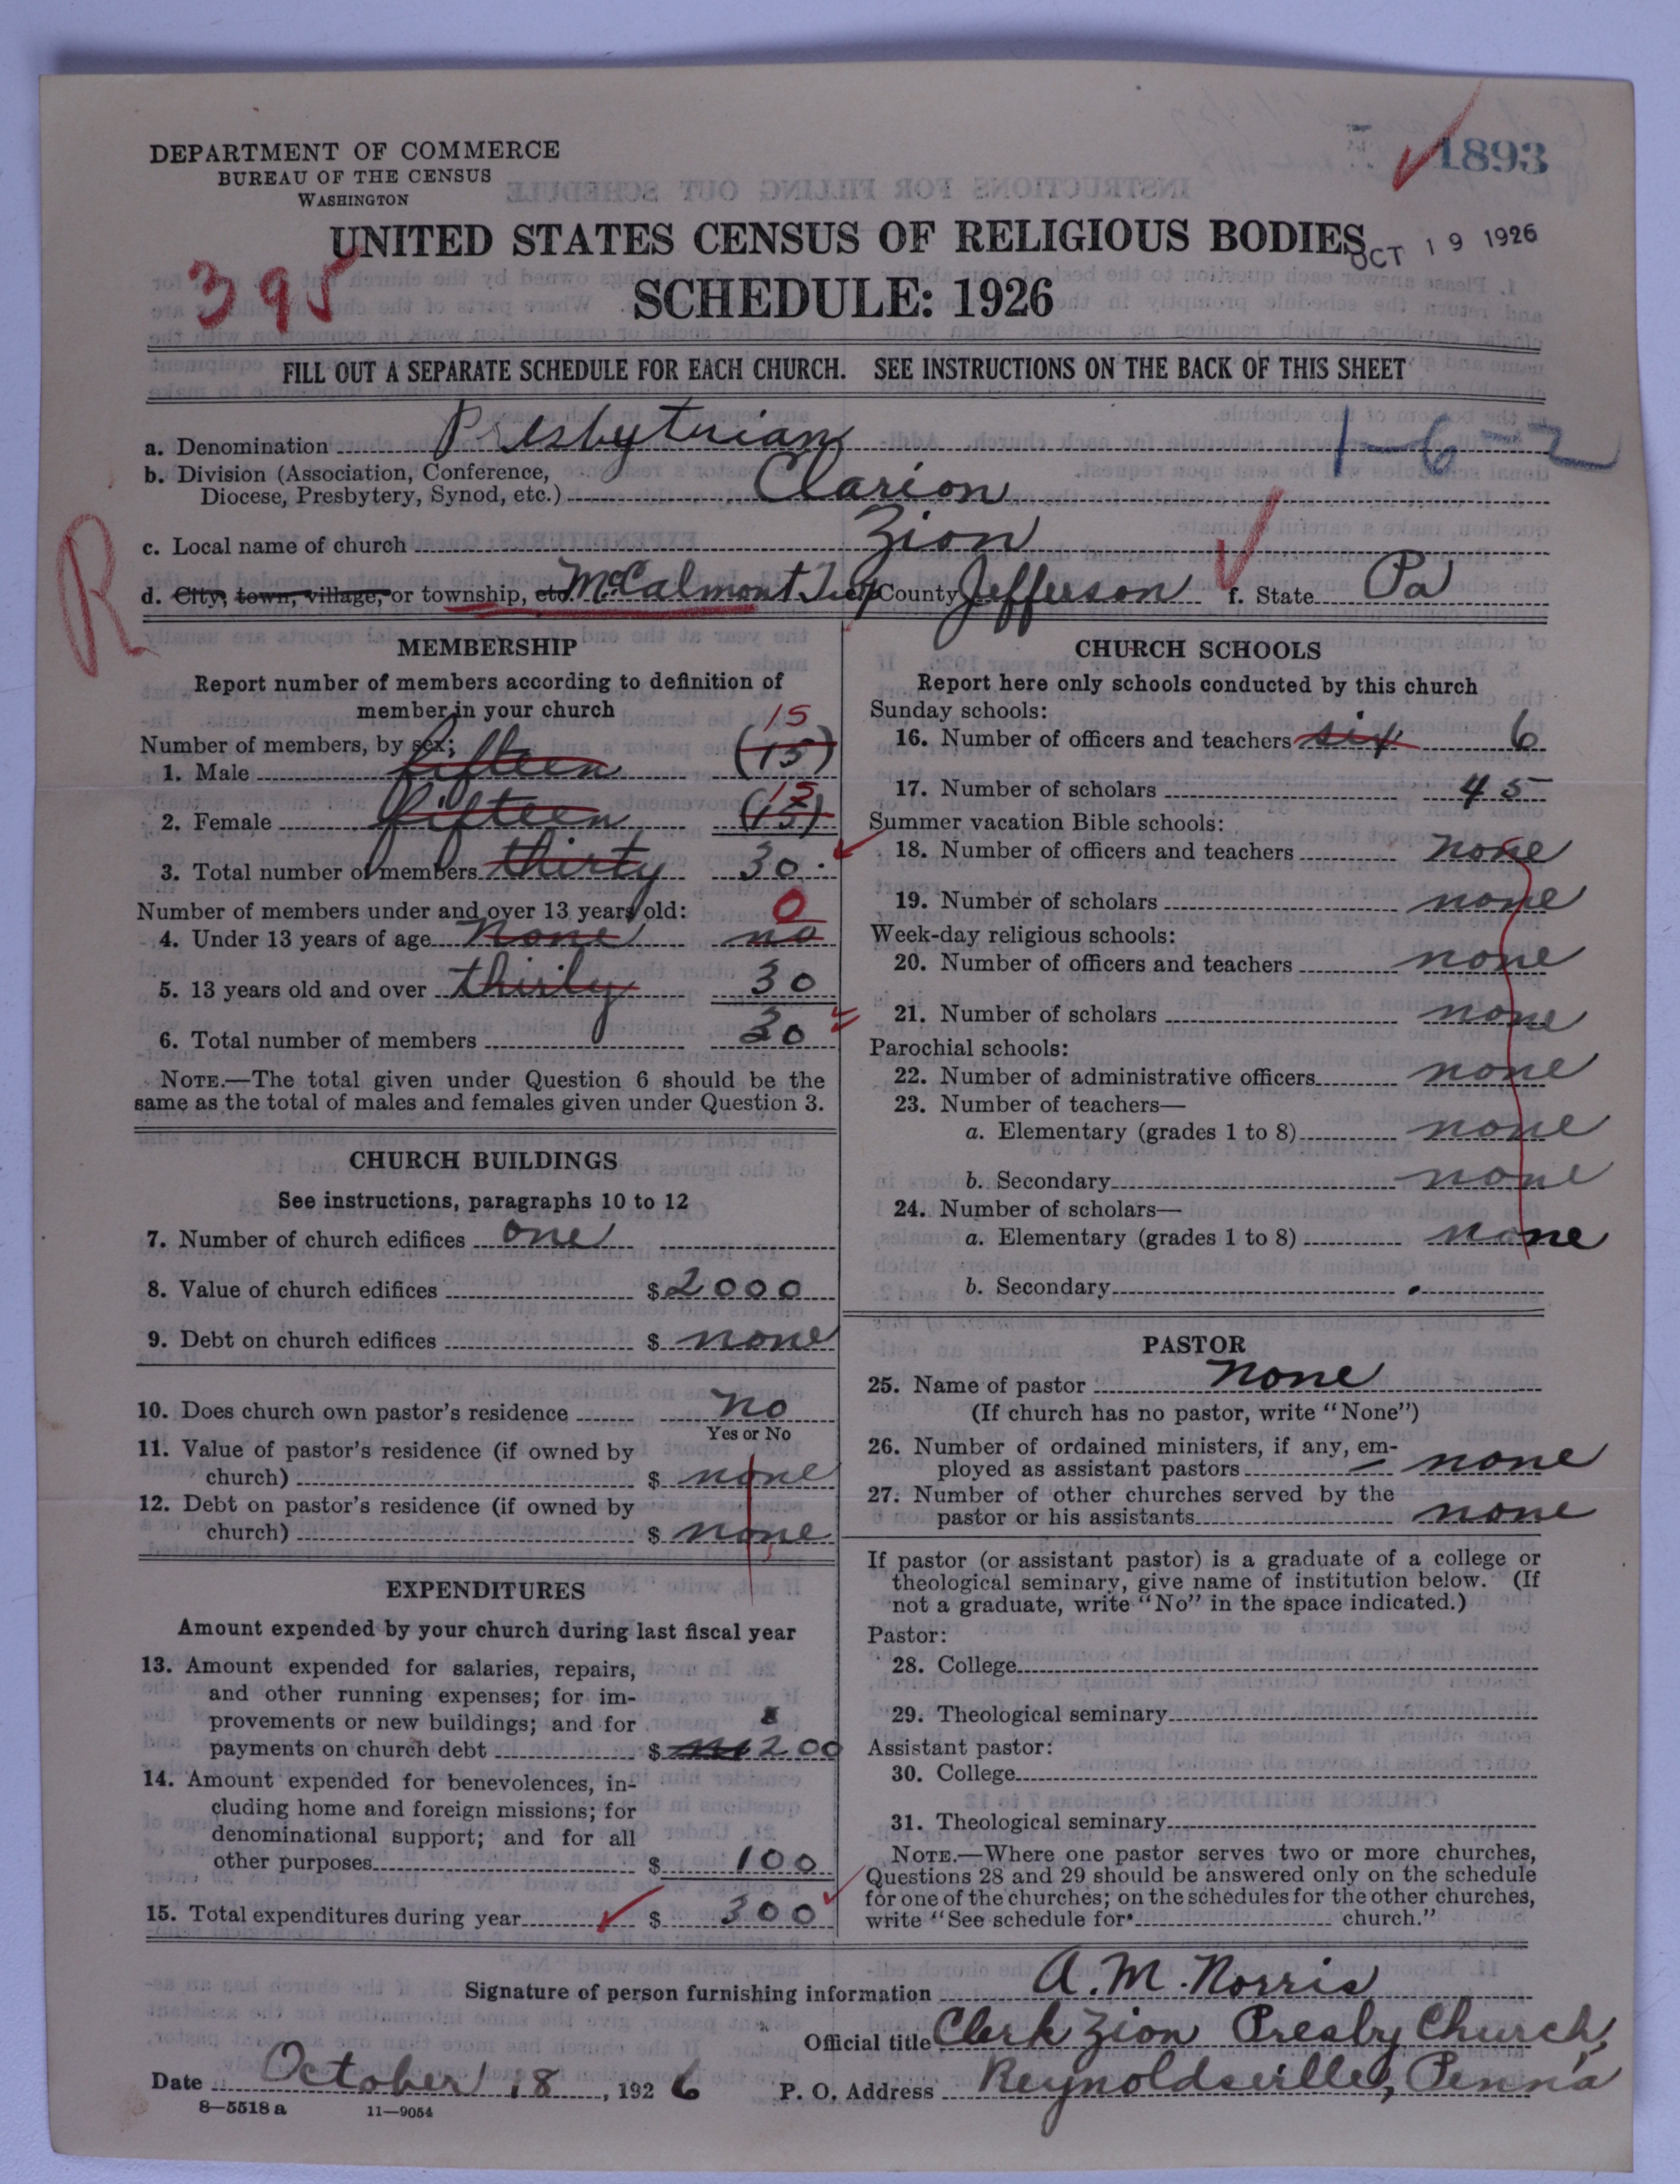 1893
DEPARTMENT OF COMMERCE
BUREAU OF THE CENSUS
WASHINGTON
UNITED STATES CENSUS OF RELIGIOUS BODIES
OCT 19 1926
395
SCHEDULE: 1926
FILL OUT A SEPARATE SCHEDULE FOR EACH CHURCH. SEE INSTRUCTIONS ON THE BACK OF THIS SHEET
1-6-2
a. Denomination Presbyterian
b. Division (Association, Conference,
Diocese, Presbytery, Synod, etc.) Clarion
c. Local name of church Zion
R
d. City, town, village, or township, etc. McCalmont Twp County Jefferson f. State Pa
MEMBERSHIP
Report number of members according to definition of
member in your church
Number of members, by sex:
15
1. Male fifteen (15)
15
2. Female fifteen (15)
3. Total number of members thirty 30
Number of members under and over 13 years old:
0
4. Under 13 years of age none no
5. 13 years old and over thirty 30
6. Total number of members 30
NOTE.—The total given under Question 6 should be the
same as the total of males and females given under Question 3.
CHURCH BUILDINGS
See instructions, paragraphs 10 to 12
7. Number of church edifices one
8. Value of church edifices $ 2000
9. Debt on church edifices $ none
10. Does church own pastor's residence no
Yes or No
11. Value of pastor's residence (if owned by
church) $ none
12. Debt on pastor's residence (if owned by
church) $ none
EXPENDITURES
Amount expended by your church during last fiscal year
13. Amount expended for salaries, repairs,
and other running expenses; for im-
provements or new buildings; and for
payments on church debt $ 200
14. Amount expended for benevolences, in-
cluding home and foreign missions; for
denominational support; and for all
other purposes $ 100
15. Total expenditures during year $ 300
CHURCH SCHOOLS
Report here only schools conducted by this church
Sunday schools:
16. Number of officers and teachers six 6
17. Number of scholars 45
Summer vacation Bible schools:
18. Number of officers and teachers none
19. Number of scholars none
Week-day religious schools:
20. Number of officers and teachers none
21. Number of scholars none
Parochial schools:
22. Number of administrative officers none
23. Number of teachers—
a. Elementary (grades 1 to 8) none
b. Secondary none
24. Number of scholars—
a. Elementary (grades 1 to 8) none
b. Secondary
PASTOR
25. Name of pastor none
(If church has no pastor, write "None")
26. Number of ordained ministers, if any, em-
ployed as assistant pastors none
27. Number of other churches served by the
pastor or his assistants none
If pastor (or assistant pastor) is a graduate of a college or
theological seminary, give name of institution below. (If
not a graduate, write "No" in the space indicated.)
Pastor:
28. College
29. Theological seminary
Assistant pastor:
30. College
31. Theological seminary
NOTE.—Where one pastor serves two or more churches,
Questions 28 and 29 should be answered only on the schedule
for one of the churches; on the schedules for the other churches,
write "See schedule for church."
Signature of person furnishing information A. M. Norris
Official title Clerk Zion Presby Church,
Date October 18, 1926 P. O. Address Reynoldsville, Penn'a
8—5518 a 11—9054